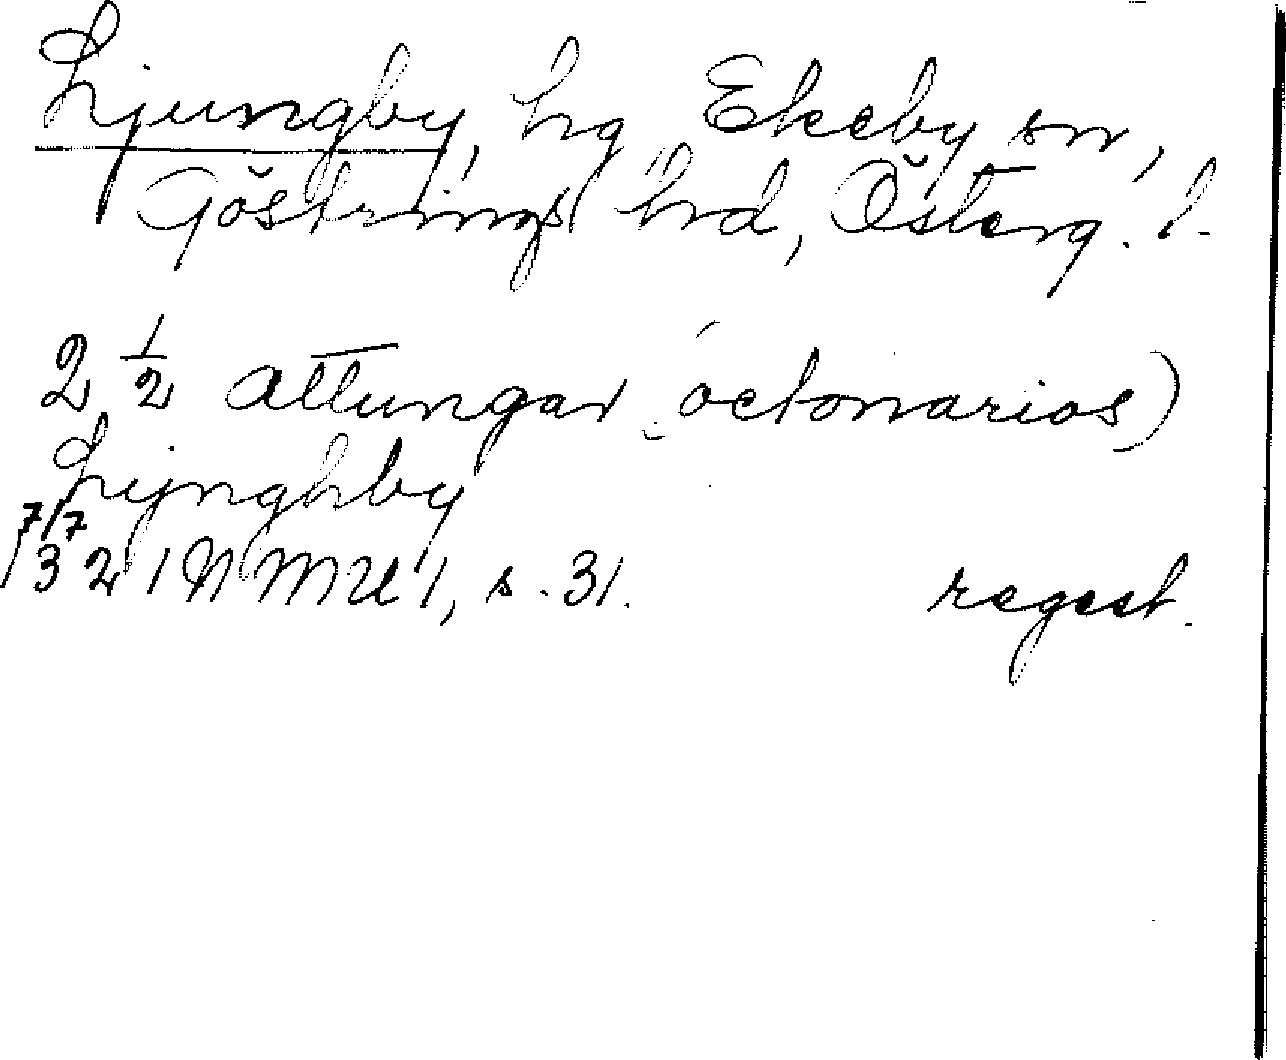 Ljungby, hg Ekeby sn,
Göstrings hrd, Österg. l.
2 1/2 attungar (octonarios)
Lijnghby
7/7
1321 NMU 1, s. 31. regest.